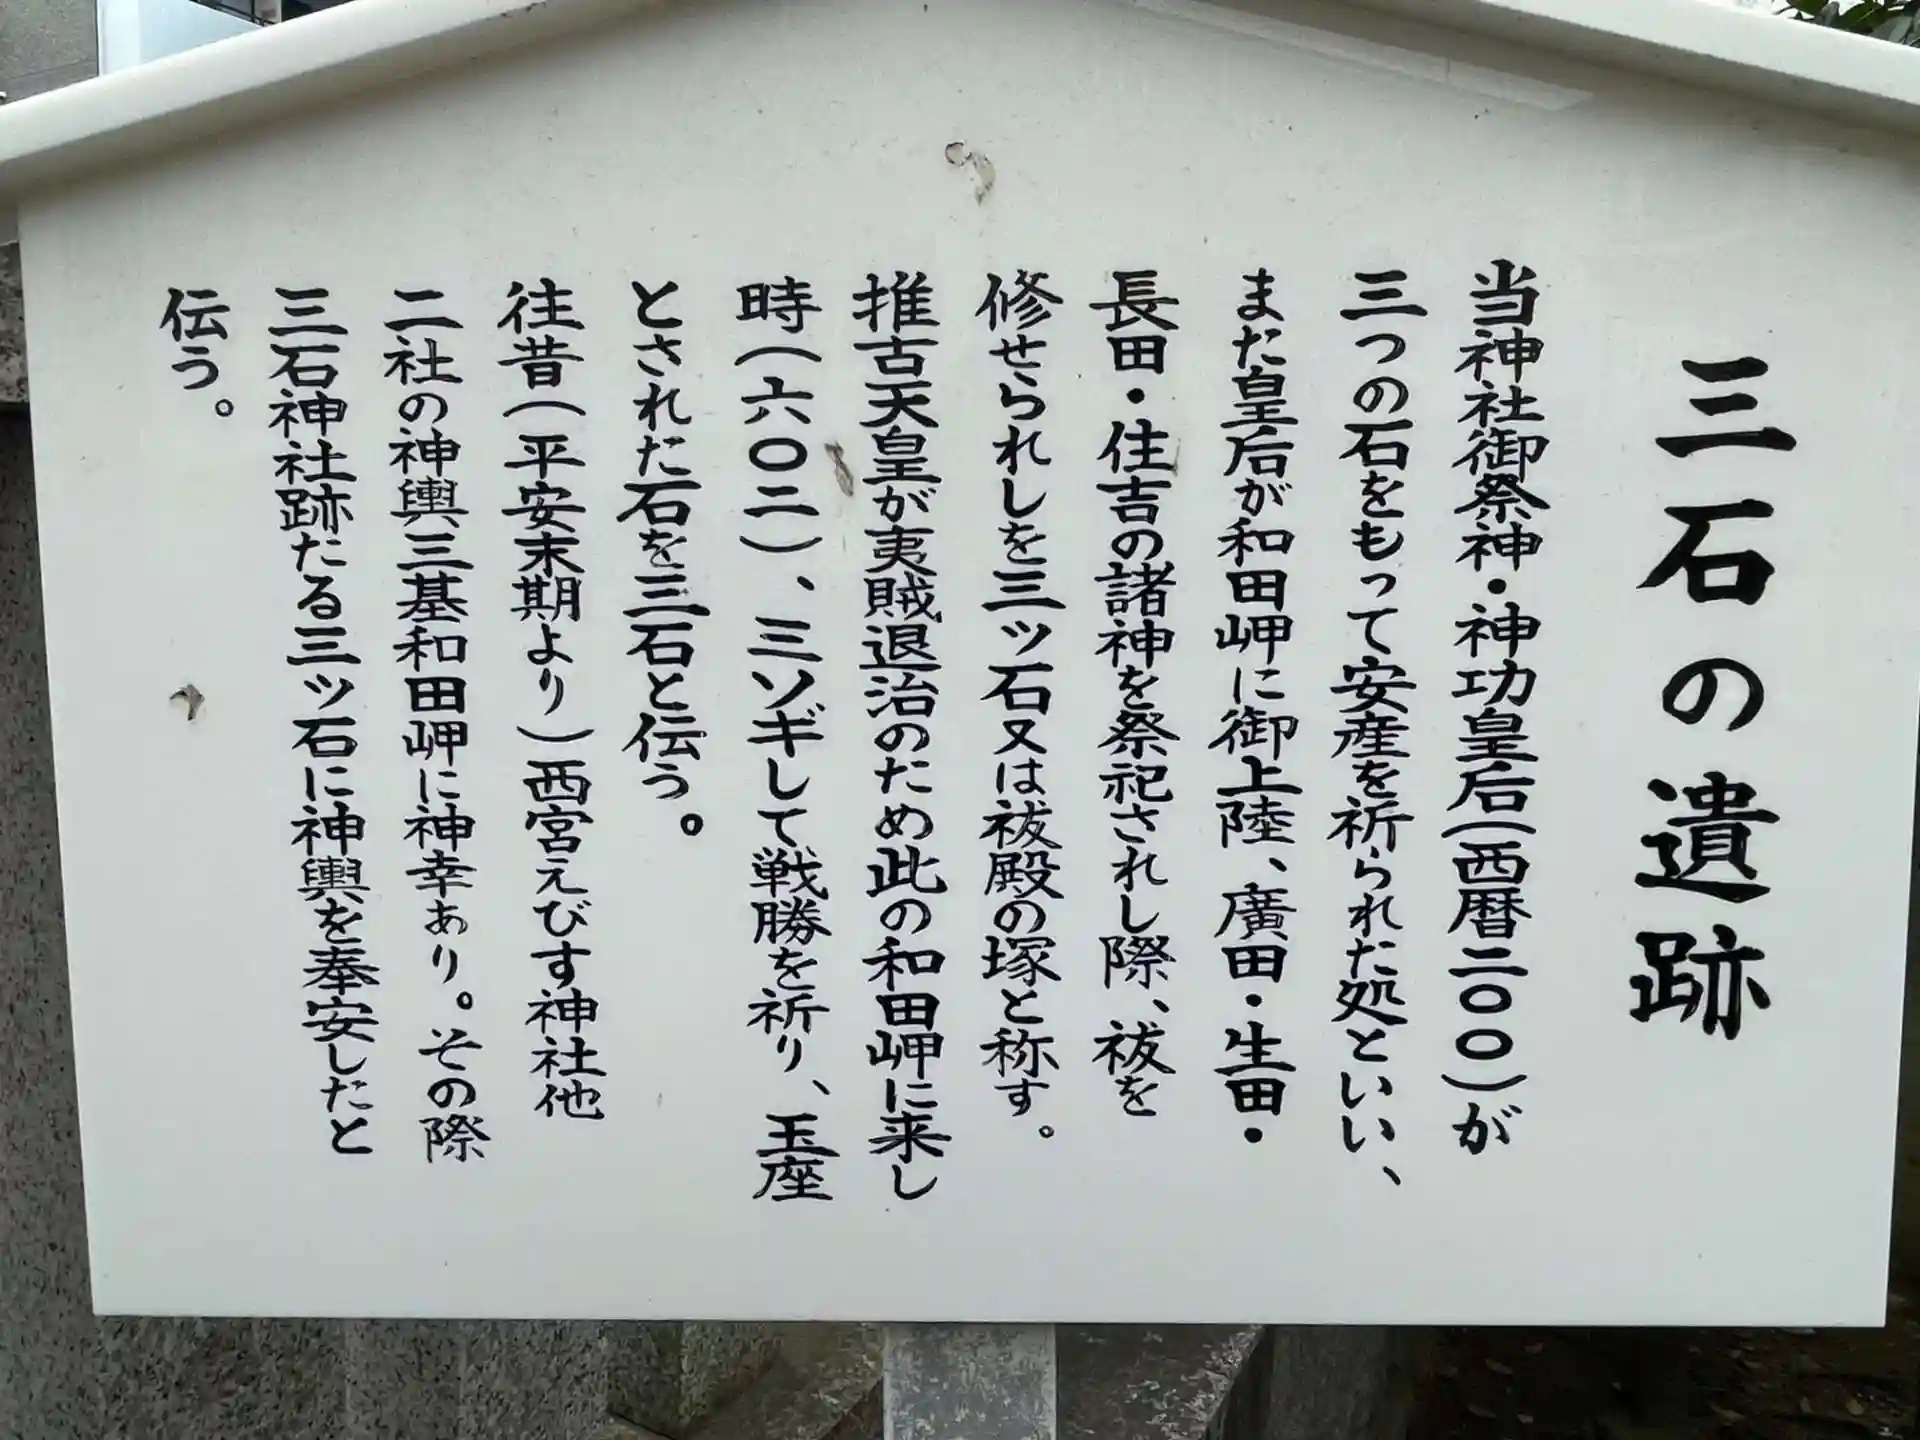 三石の遺跡
当神社御祭神・神功皇后(西暦二〇〇)が
三つの石をもって安産を祈られた処といい、
また皇后が和田岬に御上陸、廣田・生田・
長田・住吉の諸神を祭祀されし際、祓を
修せられしを三ッ石又は祓殿の塚と称す。
推古天皇が夷賊退治のため此の和田岬に来し
時(六〇二)、三ソギして戦勝を祈り、玉座
とされた石を三石と伝う。
往昔(平安末期より)西宮えびす神社他
二社の神輿三基和田岬に神幸あり。その際
三石神社跡たる三ッ石に神輿を奉安したと
伝う。